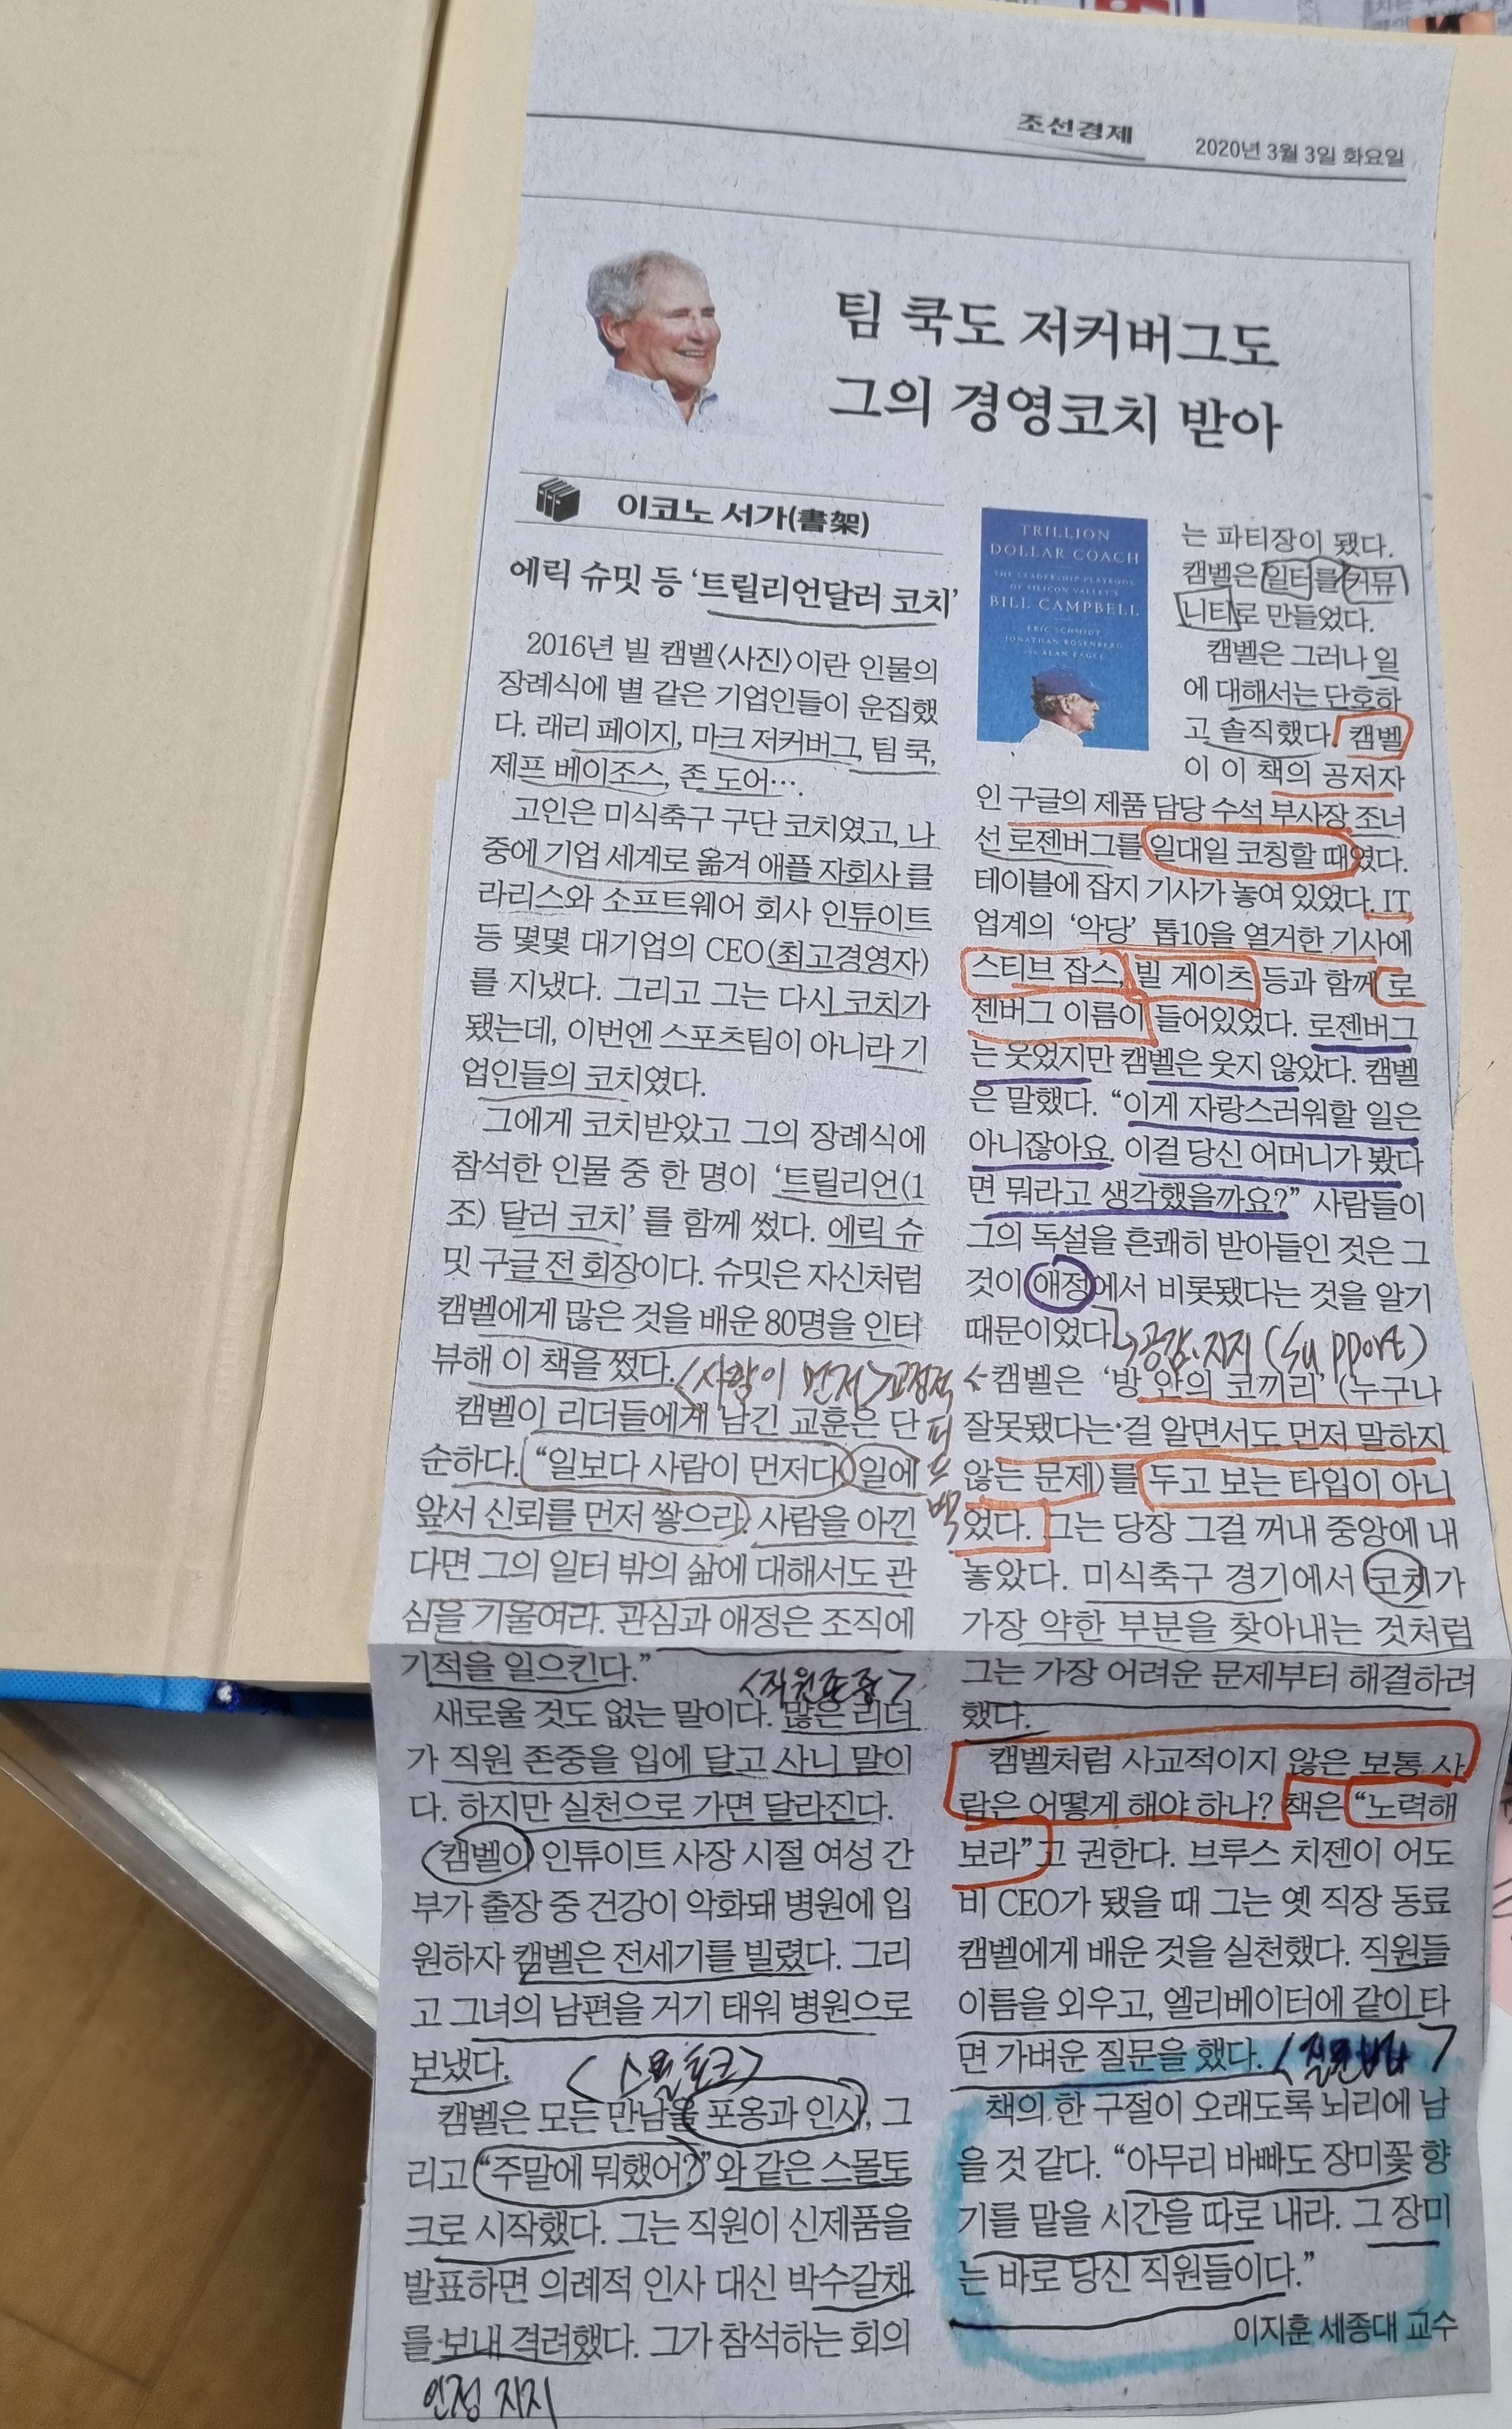 조선경제
2020년 3월 3일 화요일
팀 쿡도 저커버그도
그의 경영코치 받아
이코노 서가(書架)
에릭 슈밋 등 ‘트릴리언달러 코치’
2016년 빌 캠벨〈사진〉이란 인물의
장례식에 별 같은 기업인들이 운집했
다. 래리 페이지, 마크 저커버그, 팀 쿡,
제프 베이조스, 존 도어….
고인은 미식축구 구단 코치였고, 나
중에 기업 세계로 옮겨 애플 자회사 클
라리스와 소프트웨어 회사 인튜이트
등 몇몇 대기업의 CEO(최고경영자)
를 지냈다. 그리고 그는 다시 코치가
됐는데, 이번엔 스포츠팀이 아니라 기
업인들의 코치였다.
그에게 코치받았고 그의 장례식에
참석한 인물 중 한 명이 ‘트릴리언(1
조) 달러 코치’를 함께 썼다. 에릭 슈
밋 구글 전 회장이다. 슈밋은 자신처럼
캠벨에게 많은 것을 배운 80명을 인터
뷰해 이 책을 썼다.
<사람이 먼저>
캠벨이 리더들에게 남긴 교훈은 단
순하다. “일보다 사람이 먼저다. 일에
앞서 신뢰를 먼저 쌓으라. 사람을 아낀
다면 그의 일터 밖의 삶에 대해서도 관
심을 기울여라. 관심과 애정은 조직에
기적을 일으킨다.”
<직원존중>
새로울 것도 없는 말이다. 많은 리더
가 직원 존중을 입에 달고 사니 말이
다. 하지만 실천으로 가면 달라진다.
캠벨이 인튜이트 사장 시절 여성 간
부가 출장 중 건강이 악화돼 병원에 입
원하자 캠벨은 전세기를 빌렸다. 그리
고 그녀의 남편을 거기 태워 병원으로
보냈다.
<스몰토크>
캠벨은 모든 만남을 포옹과 인사, 그
리고 “주말에 뭐했어?”와 같은 스몰토
크로 시작했다. 그는 직원이 신제품을
발표하면 의례적 인사 대신 박수갈채
를 보내 격려했다. 그가 참석하는 회의
인정 지지
TRILLION
DOLLAR COACH
THE LEADERSHIP PLAYBOOK
OF SILICON VALLEY'S
BILL CAMPBELL
ERIC SCHMIDT
JONATHAN ROSENBERG
AND ALAN EAGLE
는 파티장이 됐다.
캠벨은 일터를 커뮤
니티로 만들었다.
캠벨은 그러나 일
에 대해서는 단호하
고 솔직했다. 캠벨
이 이 책의 공저자
인 구글의 제품 담당 수석 부사장 조너
선 로젠버그를 일대일 코칭할 때였다.
테이블에 잡지 기사가 놓여 있었다. IT
업계의 ‘악당’ 톱10을 열거한 기사에
스티브 잡스, 빌 게이츠 등과 함께 로
젠버그 이름이 들어있었다. 로젠버그
는 웃었지만 캠벨은 웃지 않았다. 캠벨
은 말했다. “이게 자랑스러워할 일은
아니잖아요. 이걸 당신 어머니가 봤다
면 뭐라고 생각했을까요?” 사람들이
그의 독설을 흔쾌히 받아들인 것은 그
것이 애정에서 비롯됐다는 것을 알기
때문이었다.
공감·지지 (support)
교정적 피드백
캠벨은 ‘방 안의 코끼리’(누구나
잘못됐다는 걸 알면서도 먼저 말하지
않는 문제)를 두고 보는 타입이 아니
었다. 그는 당장 그걸 꺼내 중앙에 내
놓았다. 미식축구 경기에서 코치가
가장 약한 부분을 찾아내는 것처럼
그는 가장 어려운 문제부터 해결하려
했다.
캠벨처럼 사교적이지 않은 보통 사
람은 어떻게 해야 하나? 책은 “노력해
보라”고 권한다. 브루스 치젠이 어도
비 CEO가 됐을 때 그는 옛 직장 동료
캠벨에게 배운 것을 실천했다. 직원들
이름을 외우고, 엘리베이터에 같이 타
면 가벼운 질문을 했다.
책의 한 구절이 오래도록 뇌리에 남
을 것 같다. “아무리 바빠도 장미꽃 향
기를 맡을 시간을 따로 내라. 그 장미
는 바로 당신 직원들이다.”
이지훈 세종대 교수